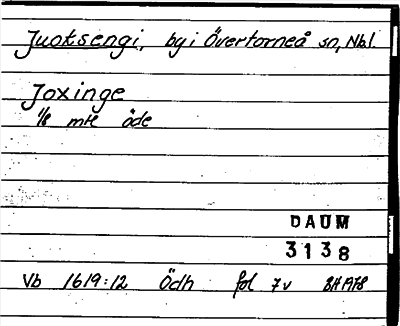 Juoksengi, by i Övertorneå sn, Nbl.
Joxinge
1/8 mtl öde
DAUM
3138
Vb 1619:12 Ödh fol 7v BH 1978